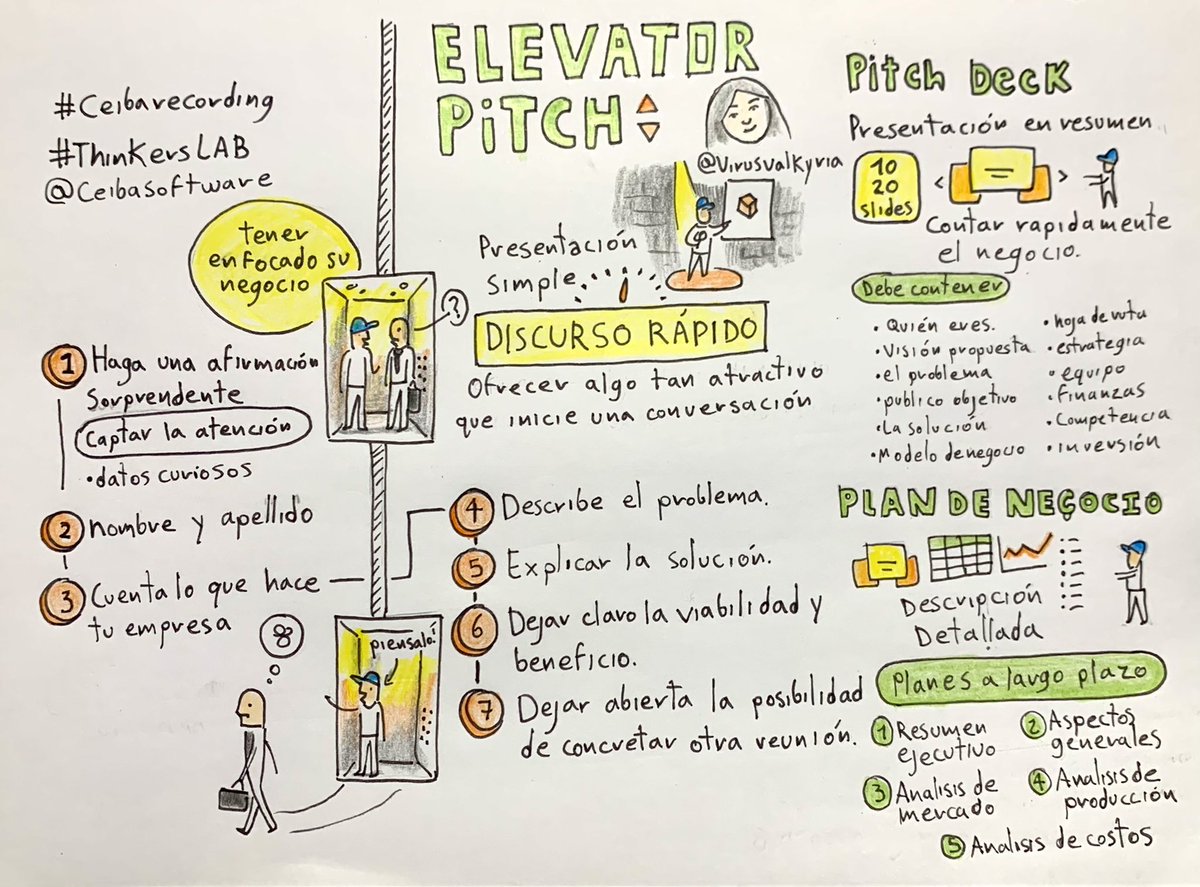 #Ceibarecording
#ThinkersLAB
@Ceibasoftware
ELEVATOR
PiTCH
@Virusvalkyria
tener
enfocado su
negocio
?
Presentación
simple.
DISCURSO RÁPIDO
Ofrecer algo tan atractivo
que inicie una conversación
1 Haga una afirmación
Sorprendente
Captar la atención
•datos curiosos
2 nombre y apellido
3 Cuenta lo que hace
tu empresa
piensalo!
4 Describe el problema.
5 Explicar la solución.
6 Dejar claro la viabilidad y
beneficio.
7 Dejar abierta la posibilidad
de concretar otra reunión.
Pitch Deck
Presentación en resumen
10
20
slides
Contar rapidamente
el negocio.
Debe contener
• Quién eres.
•Visión propuesta
•el problema
•publico objetivo
•La solución
•Modelo de negocio
•hoja de ruta
•estrategia
•equipo
•Finanzas
•Competencia
•inversión
PLAN DE NEGOCIO
Descripción
Detallada
Planes a largo plazo
1 Resumen
ejecutivo
2 Aspectos
generales
3 Analisis de
mercado
4 Analisis de
producción
5 Analisis de costos